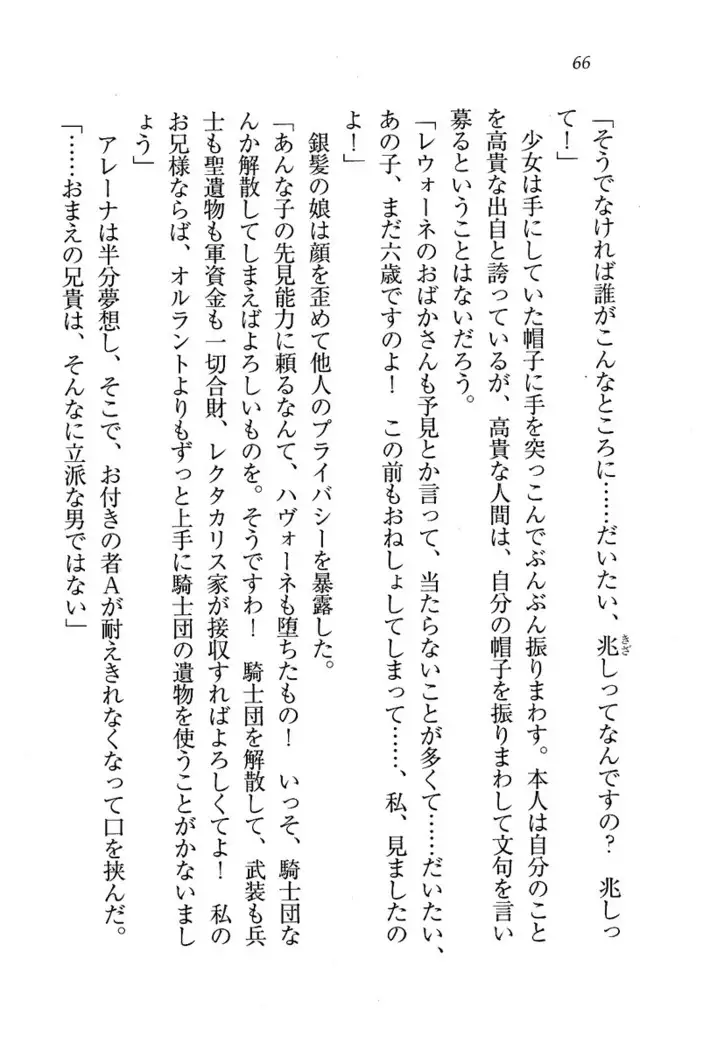 66
「そうでなければ誰がこんなところに……だいたい、兆しってなんですの？　兆しっ
きざ
て！」
　少女は手にしていた帽子に手を突っこんでぶんぶん振りまわす。本人は自分のこと
を高貴な出自と誇っているが、高貴な人間は、自分の帽子を振りまわして文句を言い
募るということはないだろう。
「レウォーネのおばかさんも予見とか言って、当たらないことが多くて……だいたい、
あの子、まだ六歳ですのよ！　この前もおねしょしてしまって……、私、見ましたの
よ！」
　銀髪の娘は顔を歪めて他人のプライバシーを暴露した。
「あんな子の先見能力に頼るなんて、ハヴォーネも堕ちたもの！　いっそ、騎士団な
んか解散してしまえばよろしいものを。そうですわ！　騎士団を解散して、武装も兵
士も聖遺物も軍資金も一切合財、レクタカリス家が接収すればよろしくてよ！　私の
お兄様ならば、オルラントよりもずっと上手に騎士団の遺物を使うことがかないまし
ょう」
　アレーナは半分夢想し、そこで、お付きの者Ａが耐えきれなくなって口を挟んだ。
「……おまえの兄貴は、そんなに立派な男ではない」